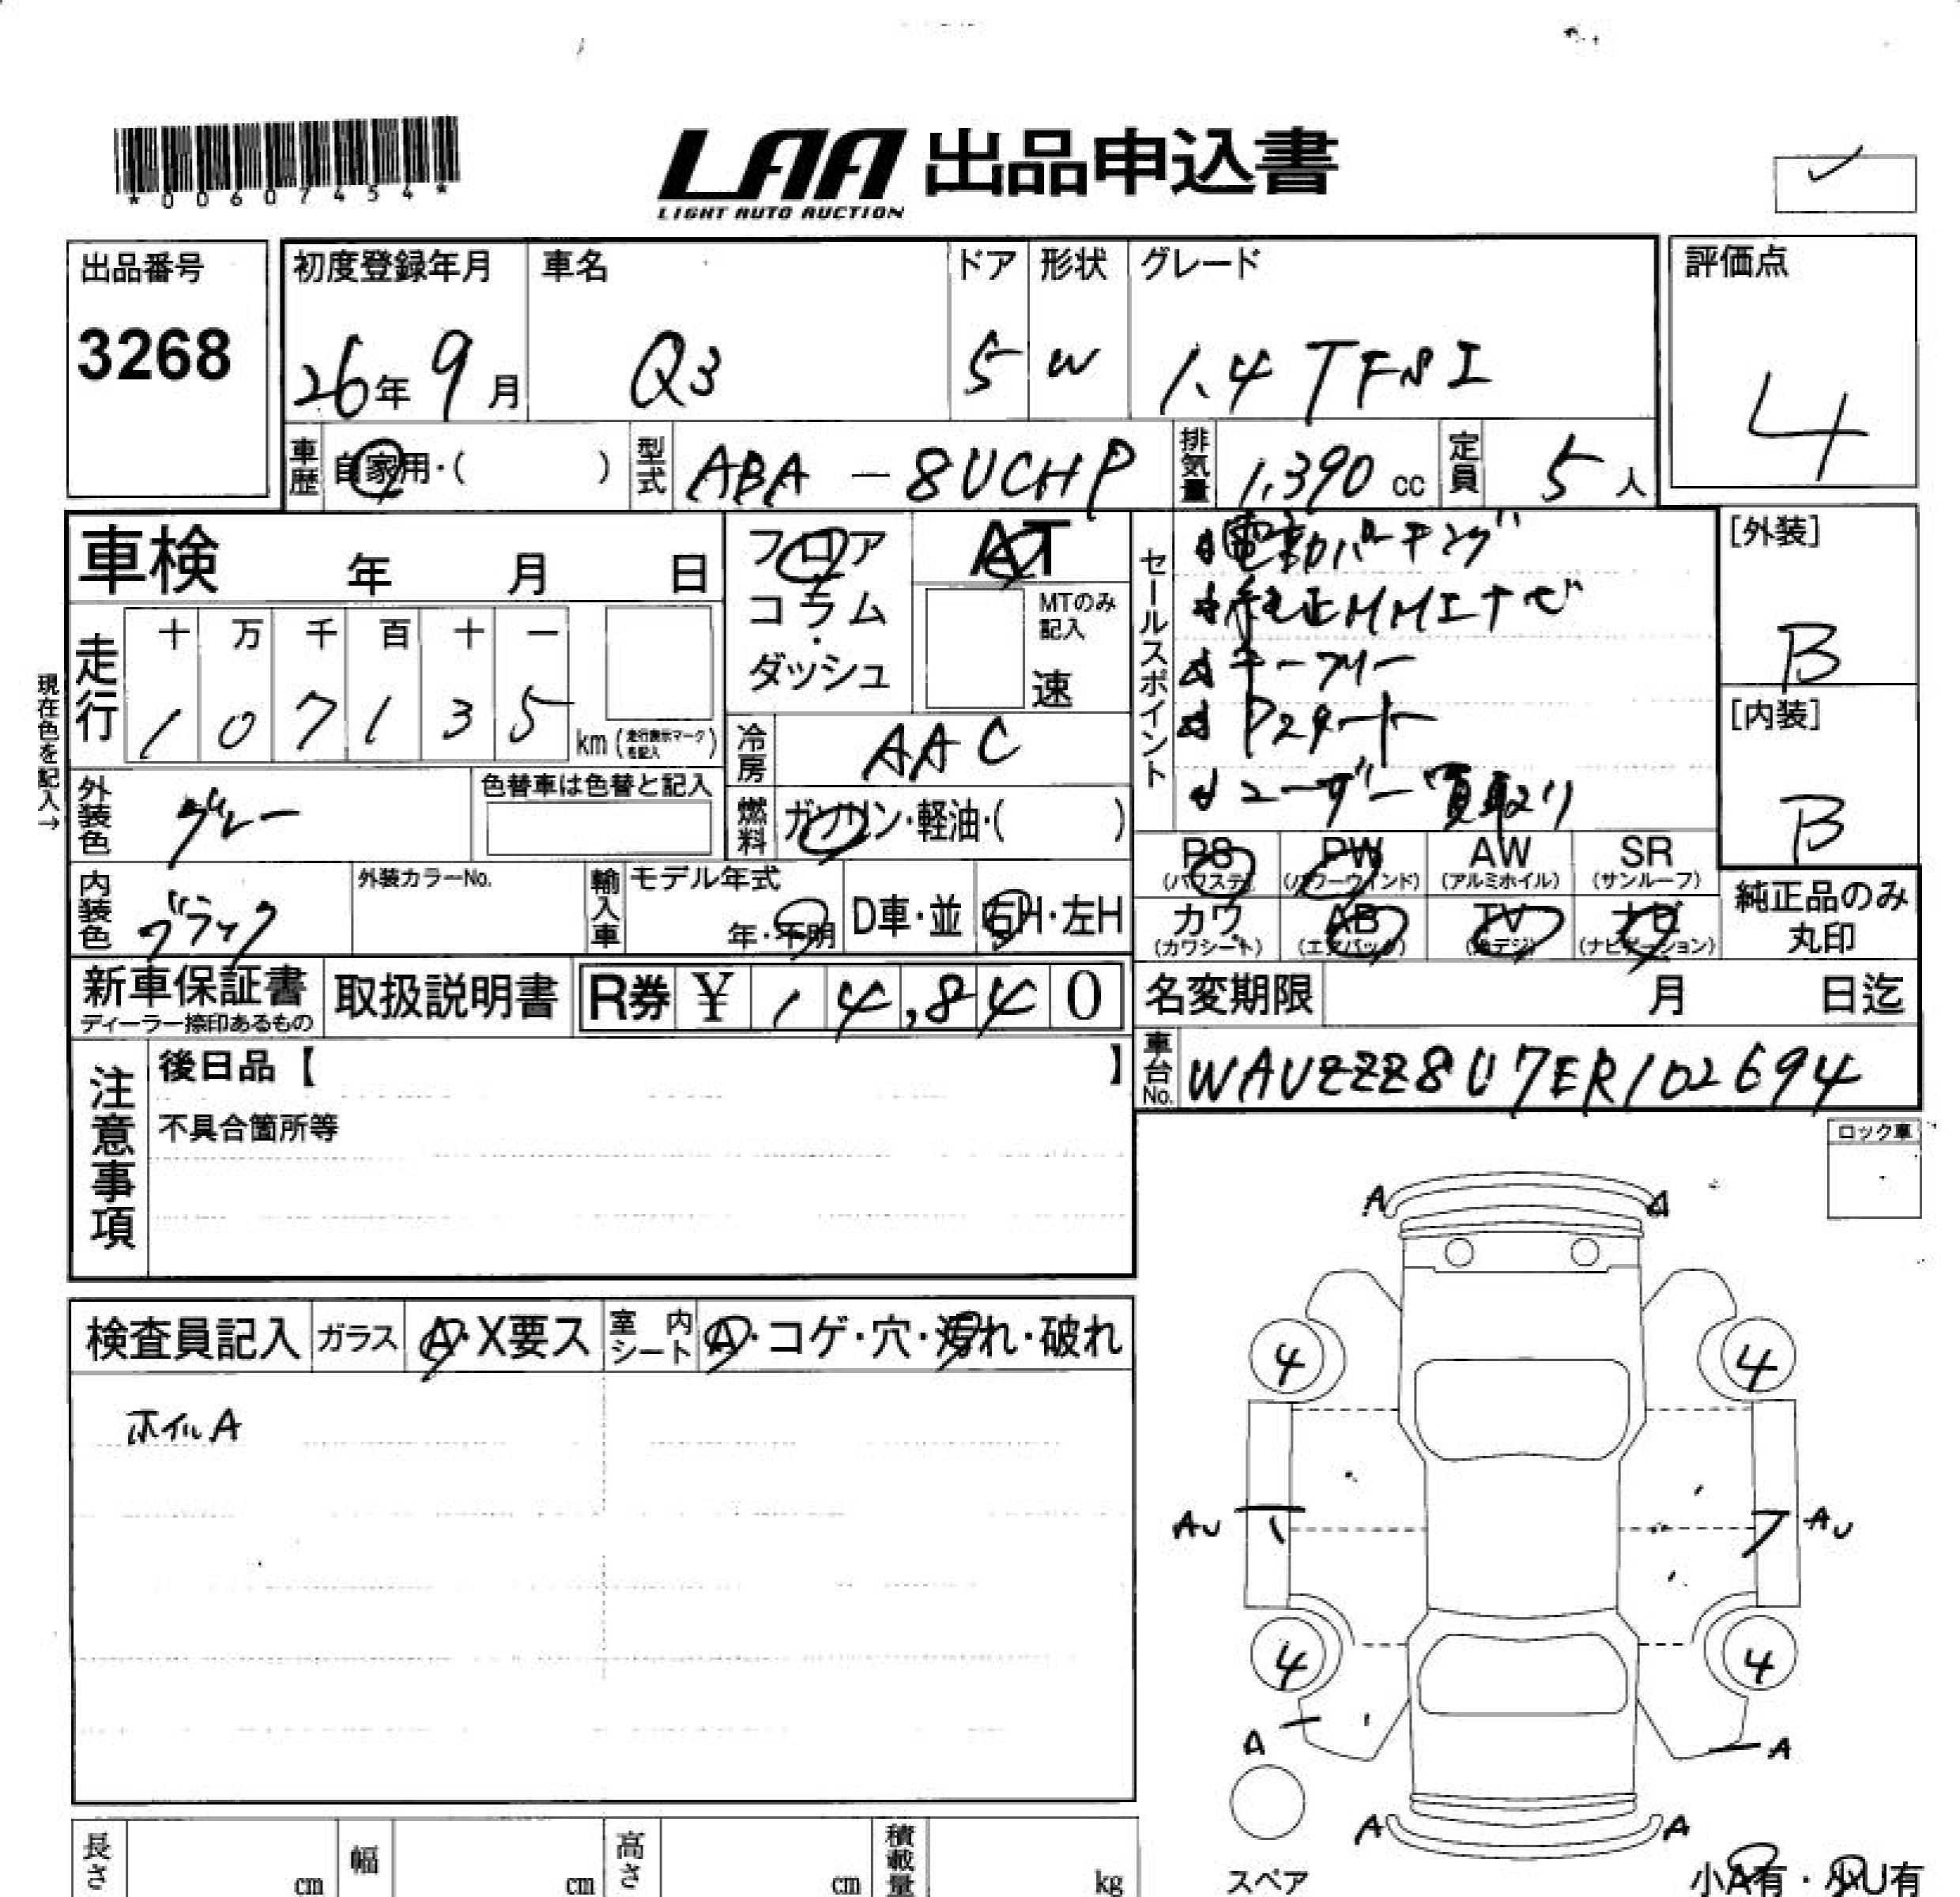 *00607454*
LAA 出品申込書
LIGHT AUTO AUCTION
出品番号
3268
初度登録年月
26年 9月
車名
Q3
ドア
5
形状
W
グレード
1.4 TFSI
評価点
4
車歴 自家用・( )
型式 ABA-8UCHP
排気量 1,390 cc
定員 5 人
車検 年 月 日
フロア
コラム
・
ダッシュ
AT
MTのみ
記入
速
セールスポイント
電動パーキング
純正MMIナビ
キーフリー
Pスタート
ユーザー買取り
[外装]
B
[内装]
B
現在色を記入→
走行
十 万 千 百 十 一
1 0 7 1 3 5
km (走行表示マークを記入)
冷房 AAC
外装色 グレー
色替車は色替と記入
燃料 ガソリン・軽油・( )
PS (パワステ)
PW (パワーウィンド)
AW (アルミホイル)
SR (サンルーフ)
カワ (カワシート)
AB (エアバック)
TV (地デジ)
ナビ (ナビゲーション)
純正品のみ
丸印
内装色 ブラック
外装カラーNo.
輸入車
モデル年式
年・不明
D車・並
右H・左H
新車保証書
ディーラー捺印あるもの
取扱説明書
R券 ¥ 14,840
名変期限 月 日迄
車台No. WAUZZZ8U7ER102694
注意事項
後日品【 】
不具合箇所等
ロック車
検査員記入
ガラス A・X要ス
室内シート A・コゲ・穴・汚れ・破れ
ホイルA
A A
4 4
AU AU
4 4
A A
A A
スペア
小A有・小U有
長さ cm
幅 cm
高さ cm
積載量 kg